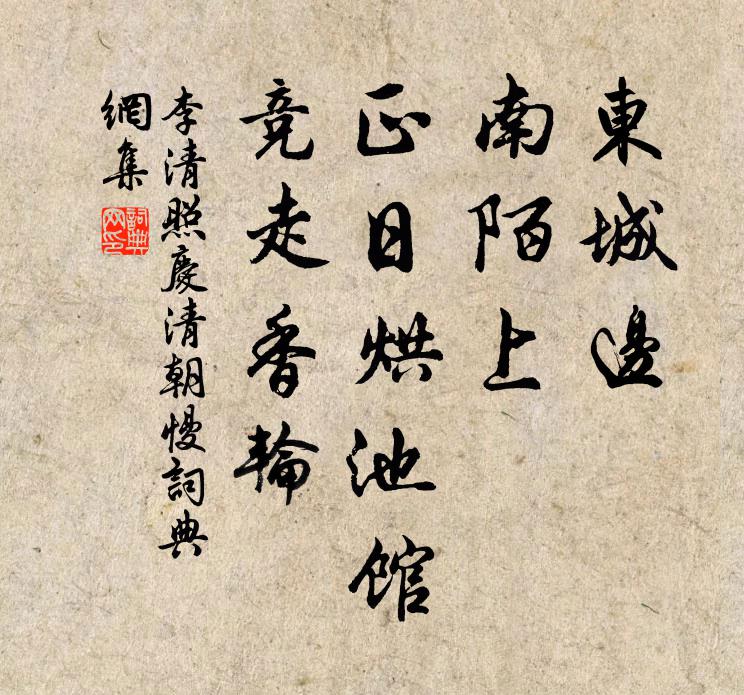 東城邊
南陌上
正日烘池館
竞走香輪
李清照慶清朝慢詞典
網集
詞典
网印